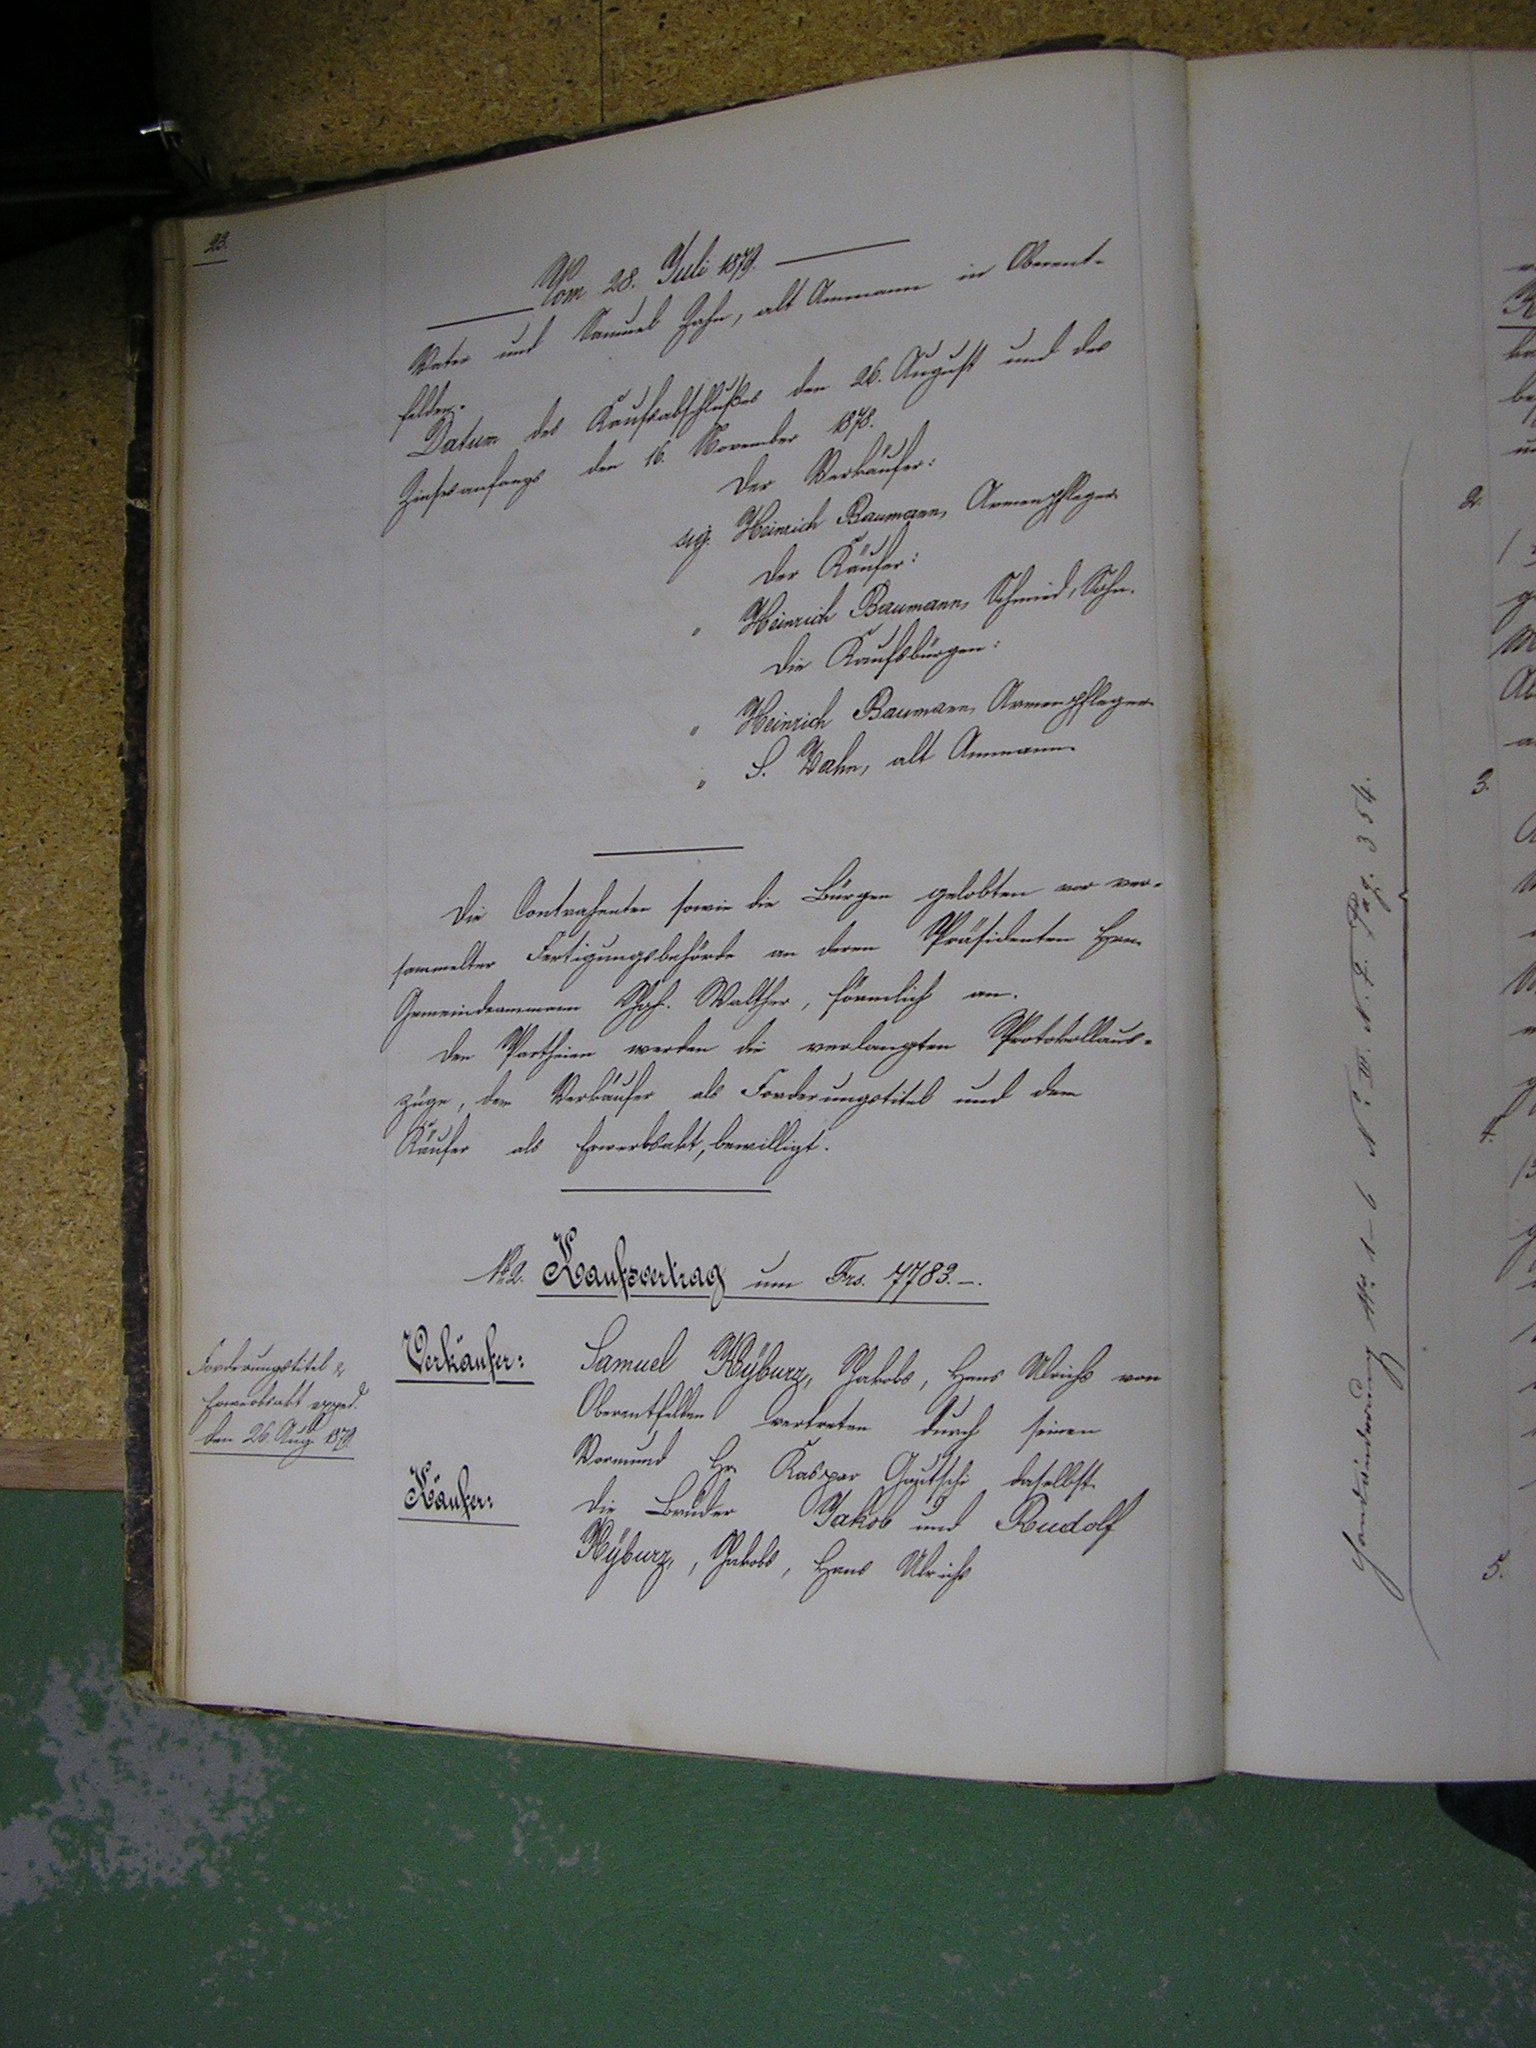 23.
Vom 28. Juli 1879.
Vater und Samuel Hahn, alt Ammann in Oberent-
felden.
Datum des Kaufsabschlußes den 26. August und des
Zinsanfangs den 16. November 1878.
Der Verkäufer:
sig. Heinrich Baumann, Armenpfleger
Der Käufer:
" Heinrich Baumann, Schmied, Sohn.
Die Kaufsbürgen:
" Heinrich Baumann, Armenpfleger
" S. Hahn, alt Ammann
Die Contrahenten sowie die Bürgen gelobten vor ver-
sammelter Fertigungsbehörde an deren Präsidenten Hrn.
Gemeindeammann Walther, förmlich an.
Den Partheien werden die verlangten Protokollaus-
züge, dem Verkäufer als Forderungstitel und dem
Käufer als Erwerbsakt, bewilligt.
No 2. Kaufsvertrag um Frs. 7783.-.
Forderungstitel &
Erwerbsakt exped.
den 26. Aug 1879
Verkäufer: Samuel Kÿburz, Jakobs, Hans Ulrichs von
Oberentfelden vertreten durch seinen
Vormund Hr. Kaspar Gautschi daselbst.
Käufer: Die Brüder Jakob und Rudolf
Kÿburz, Jakobs, Hans Ulrichs
Handänderung No. 1-6 No. III. N. F. Pag. 354.
2.
3.
4.
5.